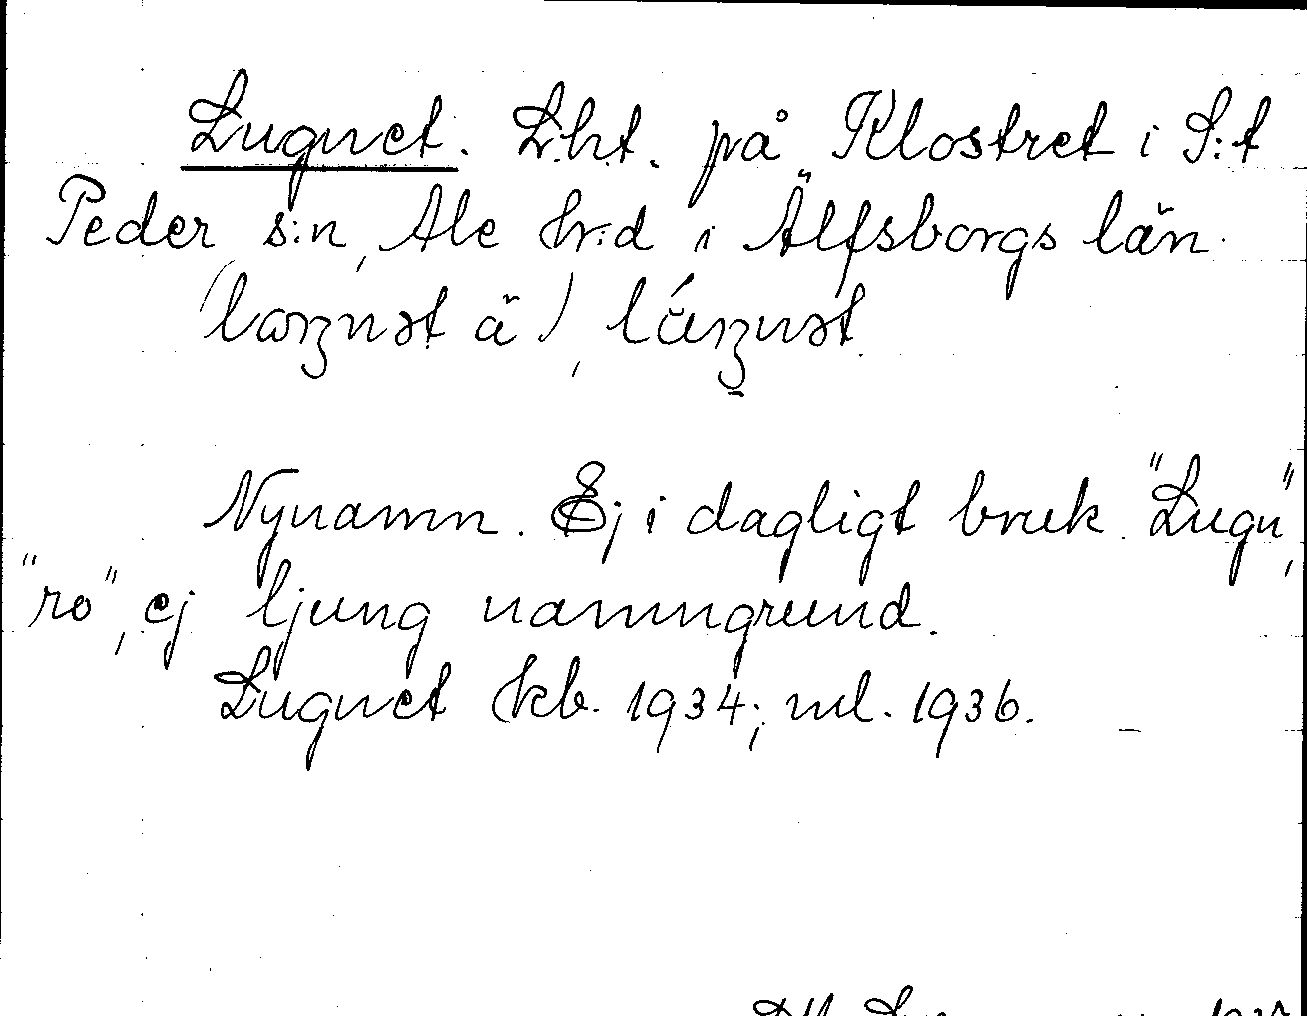 Lugnet. Lht. på Klostret i S:t
Peder s:n, Ale hr:d i Älfsborgs län.
Nynamn. Ej i dagligt bruk. "Lugn",
"ro", ej ljung namngrund.
Lugnet kb. 1934; ml. 1936.